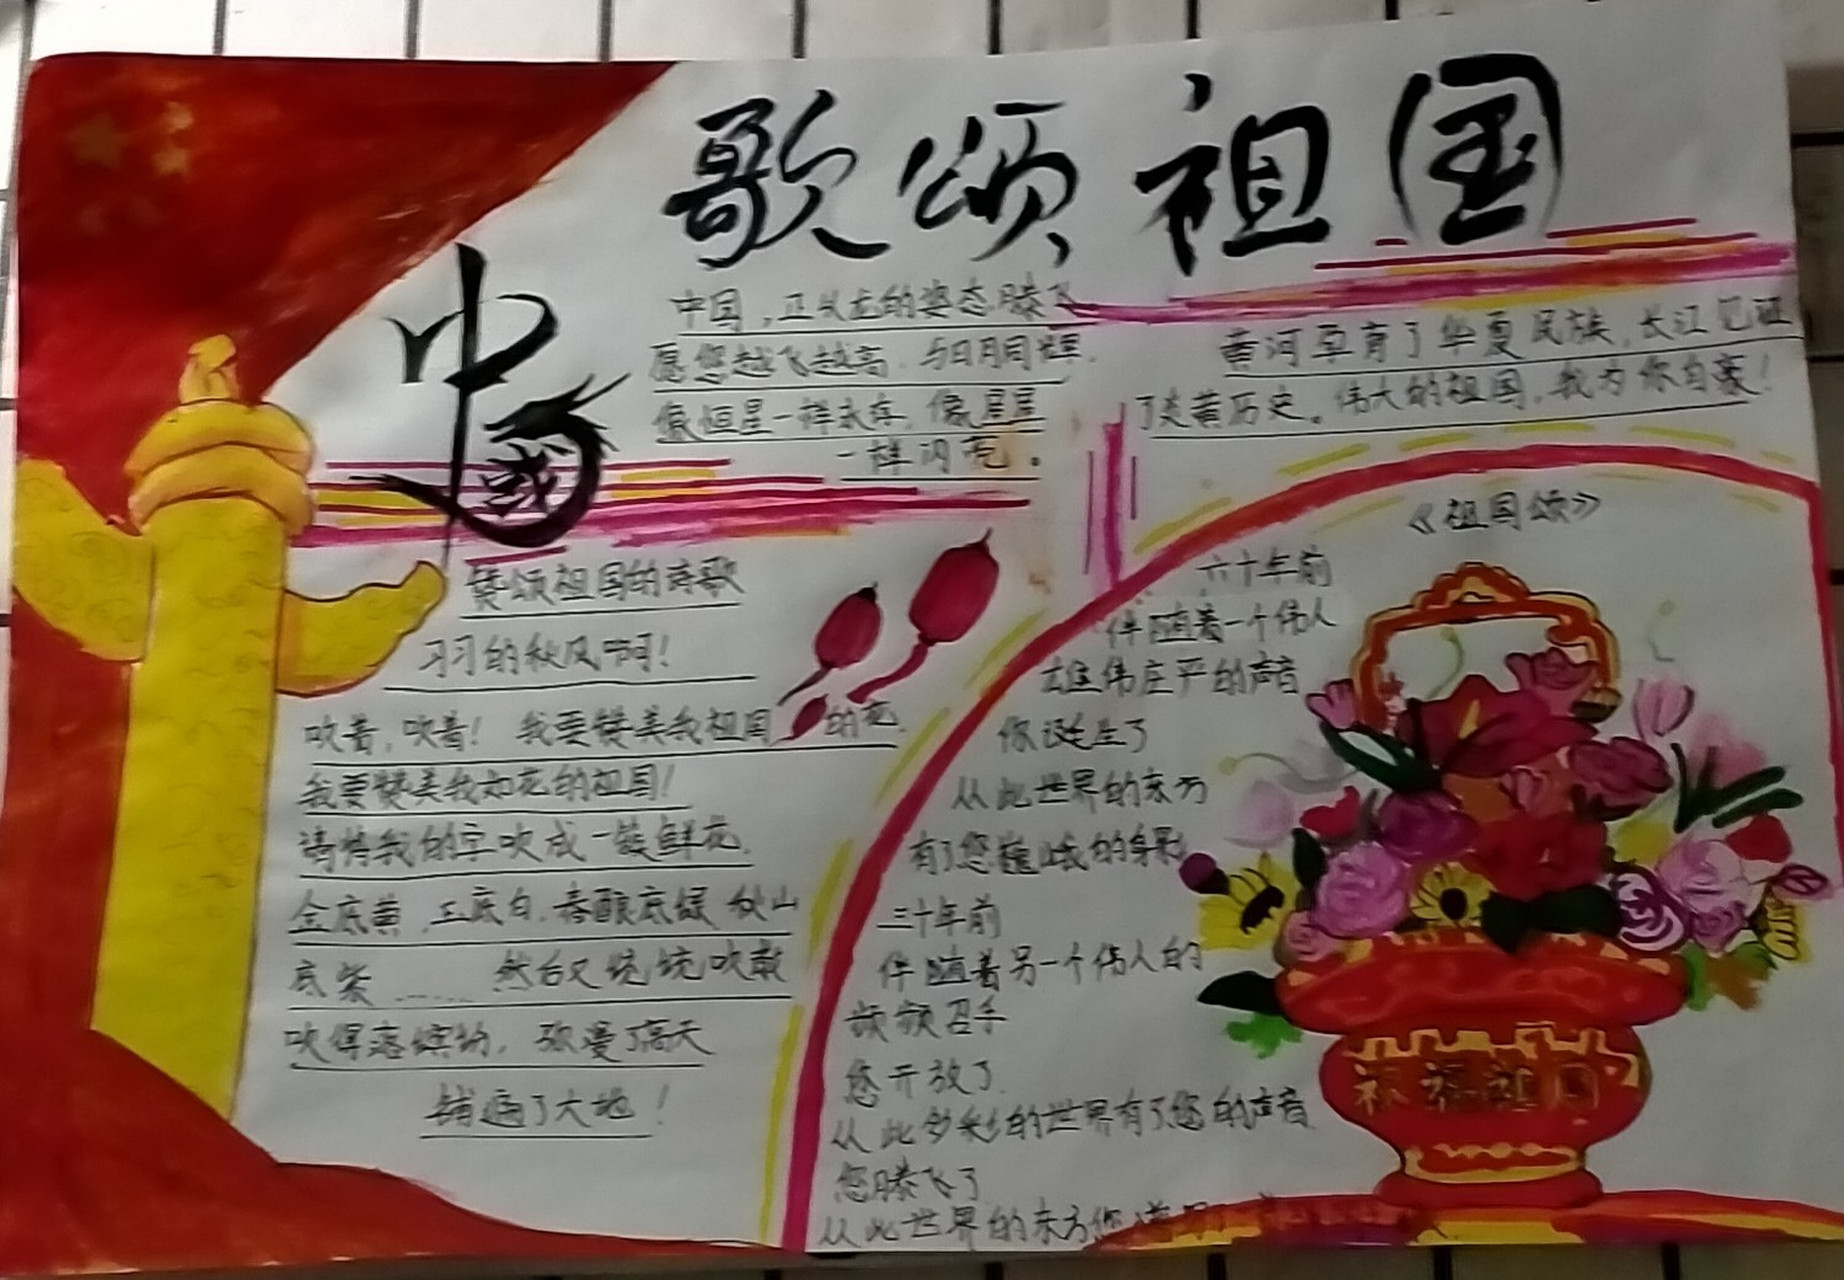 歌颂祖国
中国
中国，正以龙的姿态腾飞
愿您越飞越高，与日月同辉，
像恒星一样永存，像星星
一样闪亮。
黄河孕育了华夏民族，长江见证
了炎黄历史。伟大的祖国，我为你自豪！
赞颂祖国的诗歌
习习的秋风啊！
吹着，吹着！我要赞美我祖国的花，
我要赞美我如花的祖国！
请将我的字吹成一簇鲜花，
金底黄，玉底白，春酿底绿，秋山
底紫……然后又统统吹散
吹得落缤纷，弥漫了高天
铺遍了大地！
《祖国颂》
六十年前
伴随着一个伟人
雄伟庄严的声音
你诞生了
从此世界的东方
有了您巍峨的身影
三十年前
伴随着另一个伟人的
频频召手
您开放了
从此多彩的世界有了您的声音
您腾飞了
从此世界的东方您
祝福祖国